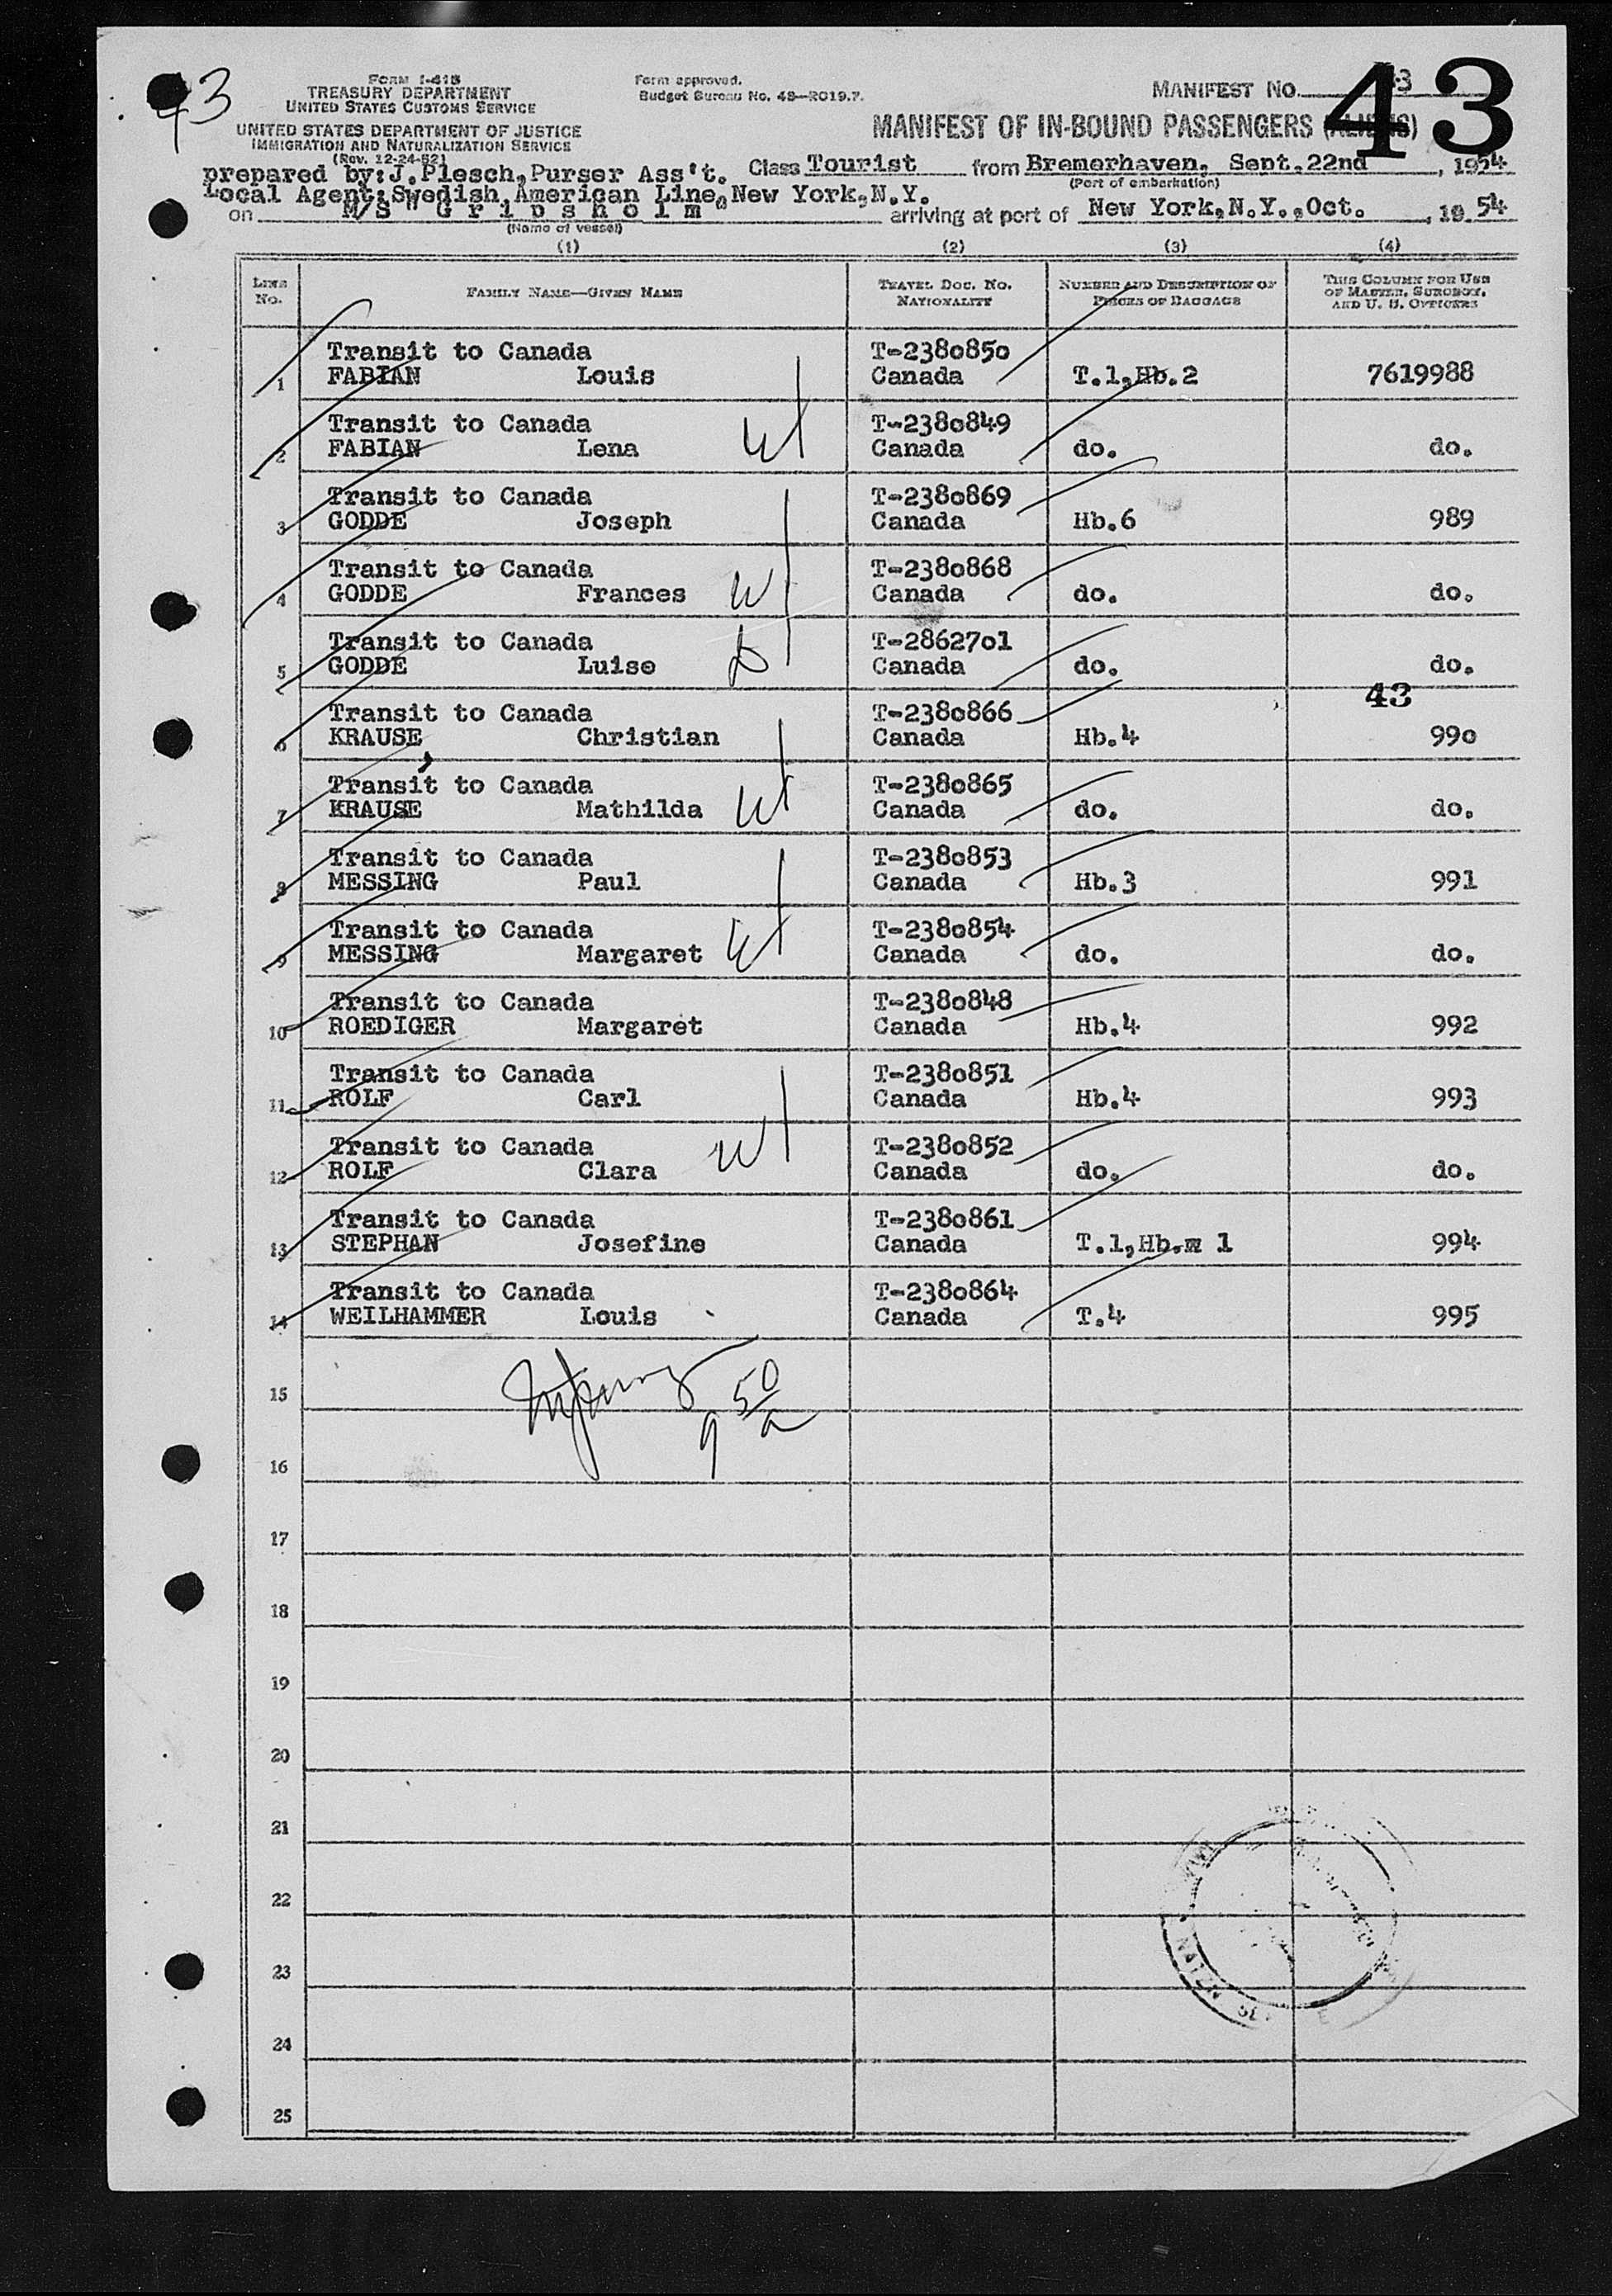 43
FORM I-418
TREASURY DEPARTMENT
UNITED STATES CUSTOMS SERVICE
UNITED STATES DEPARTMENT OF JUSTICE
IMMIGRATION AND NATURALIZATION SERVICE
(Rev. 12-24-52)
Form approved.
Budget Bureau No. 43—R019.7.
MANIFEST NO. 43
43
MANIFEST OF IN-BOUND PASSENGERS (ALIENS)
prepared by:J.Plesch,Purser Ass't. Class Tourist from Bremerhaven, Sept.22nd, 1954
(Port of embarkation)
Local Agent:Swedish American Line,New York,N.Y.
on M/S "Gripsholm" arriving at port of New York,N.Y.,Oct., 1954
(Name of vessel)
(1) (2) (3) (4)
LINE No. FAMILY NAME—GIVEN NAME TRAVEL DOC. NO. NATIONALITY NUMBER AND DESCRIPTION OF PIECES OF BAGGAGE THIS COLUMN FOR USE OF MASTER, SURGEON, AND U. S. OFFICERS
Transit to Canada T-2380850
1 FABIAN Louis Canada T.1,Hb.2 7619988
Transit to Canada T-2380849
2 FABIAN Lena Canada do. do.
Transit to Canada T-2380869
3 GODDE Joseph Canada Hb.6 989
Transit to Canada T-2380868
4 GODDE Frances W Canada do. do.
Transit to Canada T-2862701
5 GODDE Luise D Canada do. do.
43
Transit to Canada T-2380866
6 KRAUSE, Christian Canada Hb.4 990
Transit to Canada T-2380865
7 KRAUSE Mathilda Canada do. do.
Transit to Canada T-2380853
8 MESSING Paul Canada Hb.3 991
Transit to Canada T-2380854
9 MESSING Margaret Canada do. do.
Transit to Canada T-2380848
10 ROEDIGER Margaret Canada Hb.4 992
Transit to Canada T-2380851
11 ROLF Carl Canada Hb.4 993
Transit to Canada T-2380852
12 ROLF Clara Canada do. do.
Transit to Canada T-2380861
13 STEPHAN Josefine Canada T.1,Hb.m 1 994
Transit to Canada T-2380864
14 WEILHAMMER Louis Canada T.4 995
9 50/a
15
16
17
18
19
20
21
22
23
24
25